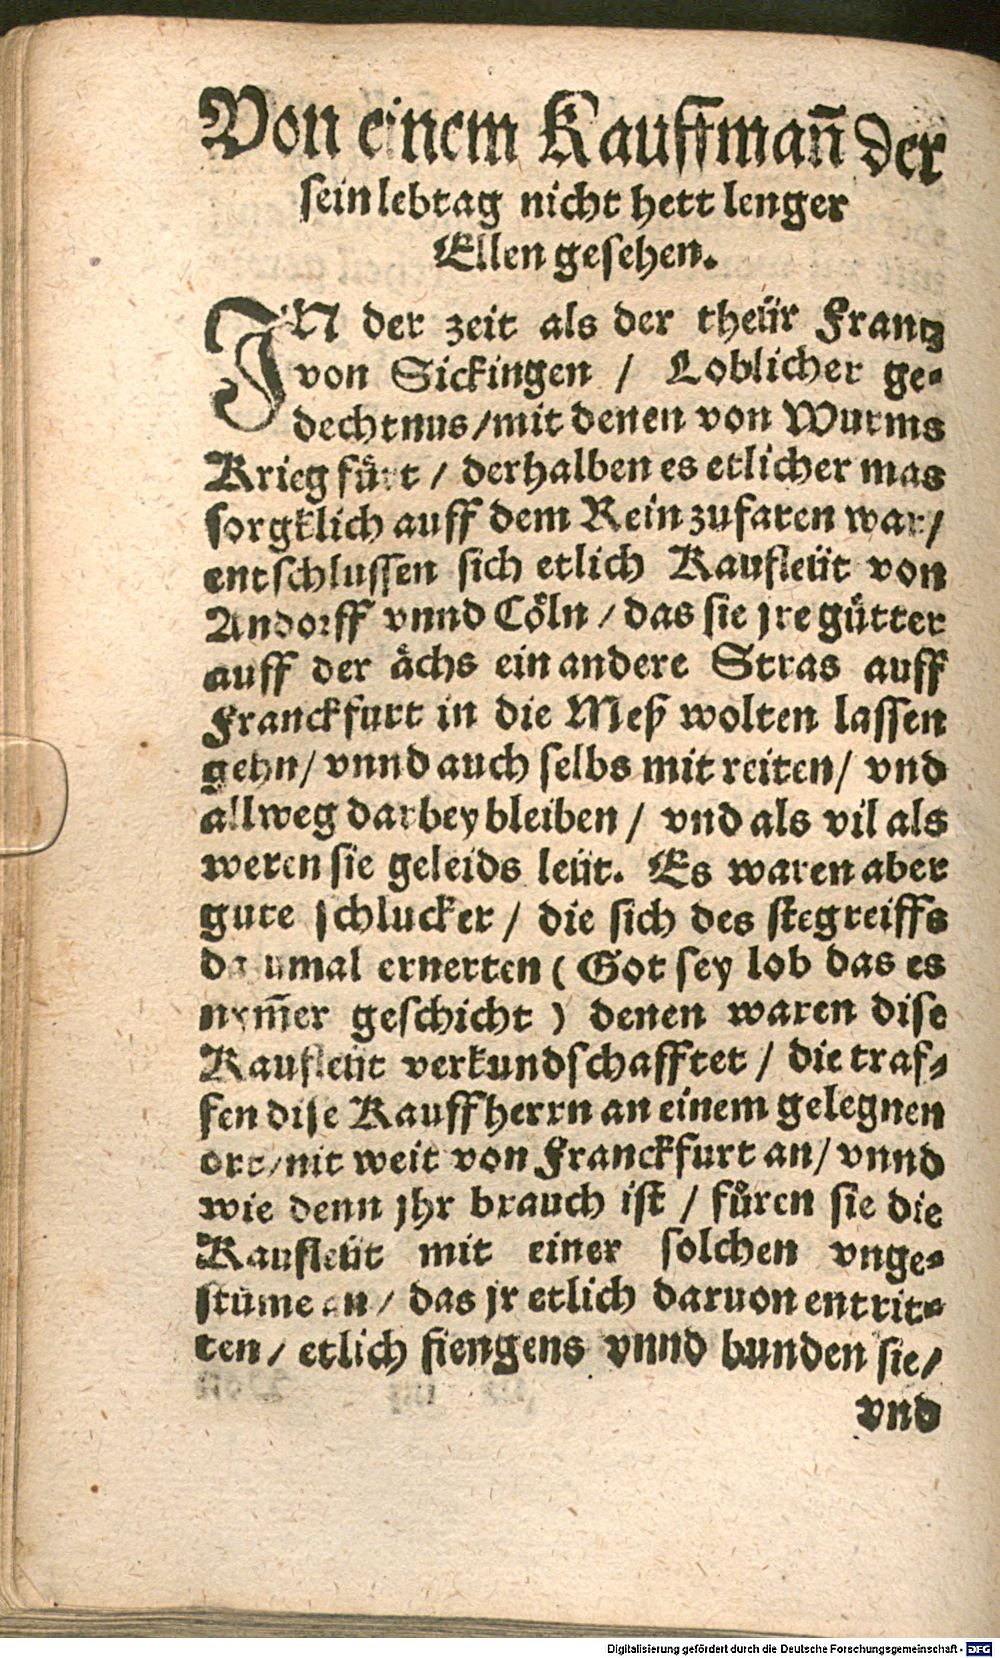 Von einem Kauffmañ der
sein lebtag nicht hett lenger
Ellen gesehen.
IN der zeit als der theür Frantz
von Sickingen / Loblicher ge-
dechtnus / mit denen von Wurms
Krieg fürt / derhalben es etlicher mas
sorgklich auff dem Rein zufaren war /
entschlussen sich etlich Kaufleüt von
Andorff vnnd Cöln / das sie jre gütter
auff der ächs ein andere Stras auff
Franckfurt in die Meß wolten lassen
gehn / vnnd auch selbs mit reiten / vnd
allweg darbey bleiben / vnd als vil als
weren sie geleids leüt. Es waren aber
gute schlucker / die sich des stegreiffs
dazumal ernerten ( Got sey lob das es
nym̃er geschicht ) denen waren dise
Kaufleüt verkundschafftet / die traf-
fen dise Kauffherrn an einem gelegnen
ort / nit weit von Franckfurt an / vnnd
wie denn jhr brauch ist / fůren sie die
Kaufleüt mit einer solchen vnge-
stüme an / das jr etlich daruon entrit-
ten / etlich fiengens vnnd bunden sie /
vnd
Digitalisierung gefördert durch die Deutsche Forschungsgemeinschaft - DFG